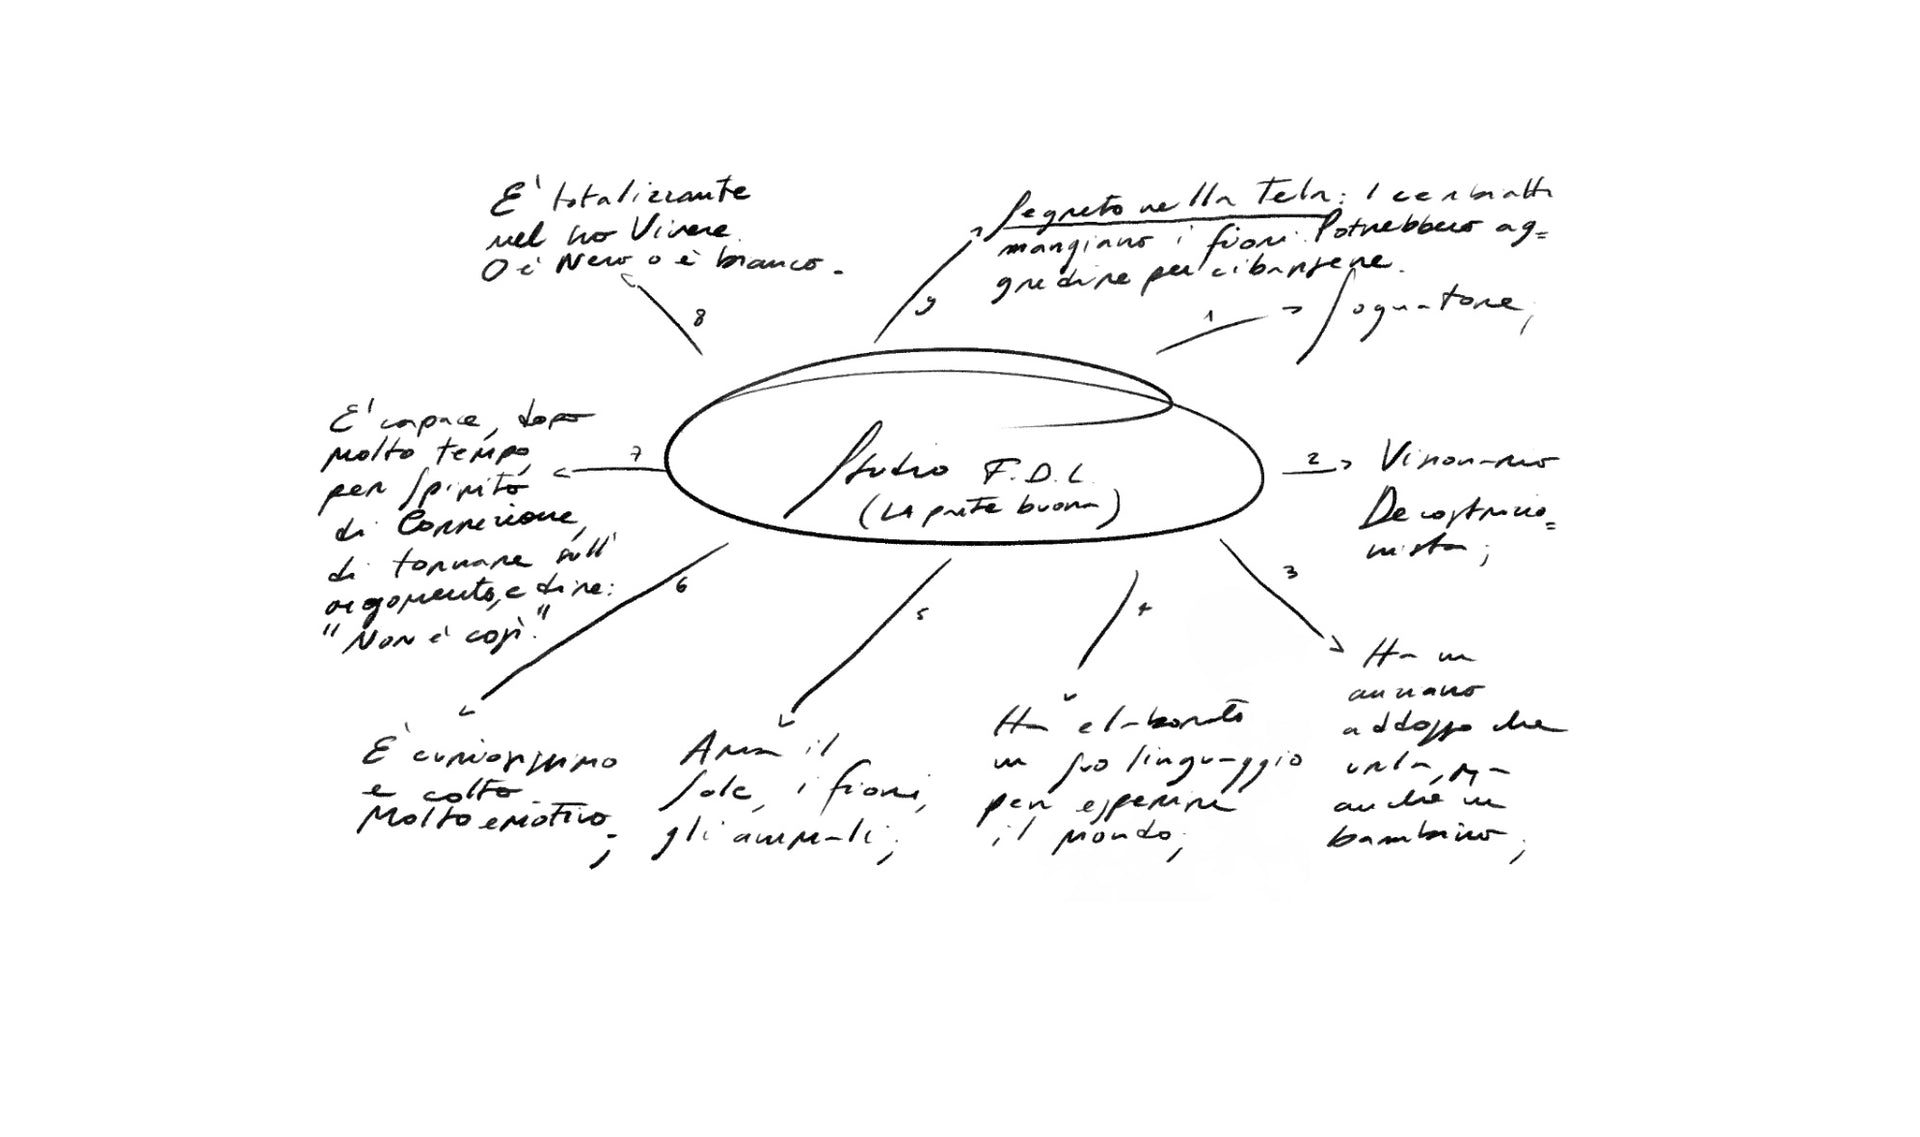 E' totalizzante
nel suo Vivere.
O è Nero o è bianco.
8
Segreto nella Tela: I cerbiatti
mangiano i fiori. Potrebbero ag=
gredire per cibarsene.
9
1
Sognatore;
Studio F.D.L.
(LA parte buona)
2
Visionario
Decostruzio=
nista;
3
Ha un
anziano
addosso che
urla, ma
anche un
bambino;
4
Ha elaborato
un suo linguaggio
per esperire
il mondo;
5
Ama il
Sole, i fiori,
gli animali;
6
È curiosissimo
e colto.
Molto emotivo;
7
E' capace, dopo
molto tempo,
per Spirito
di Correzione,
di tornare sull'
argomento, e dire:
"Non è così."